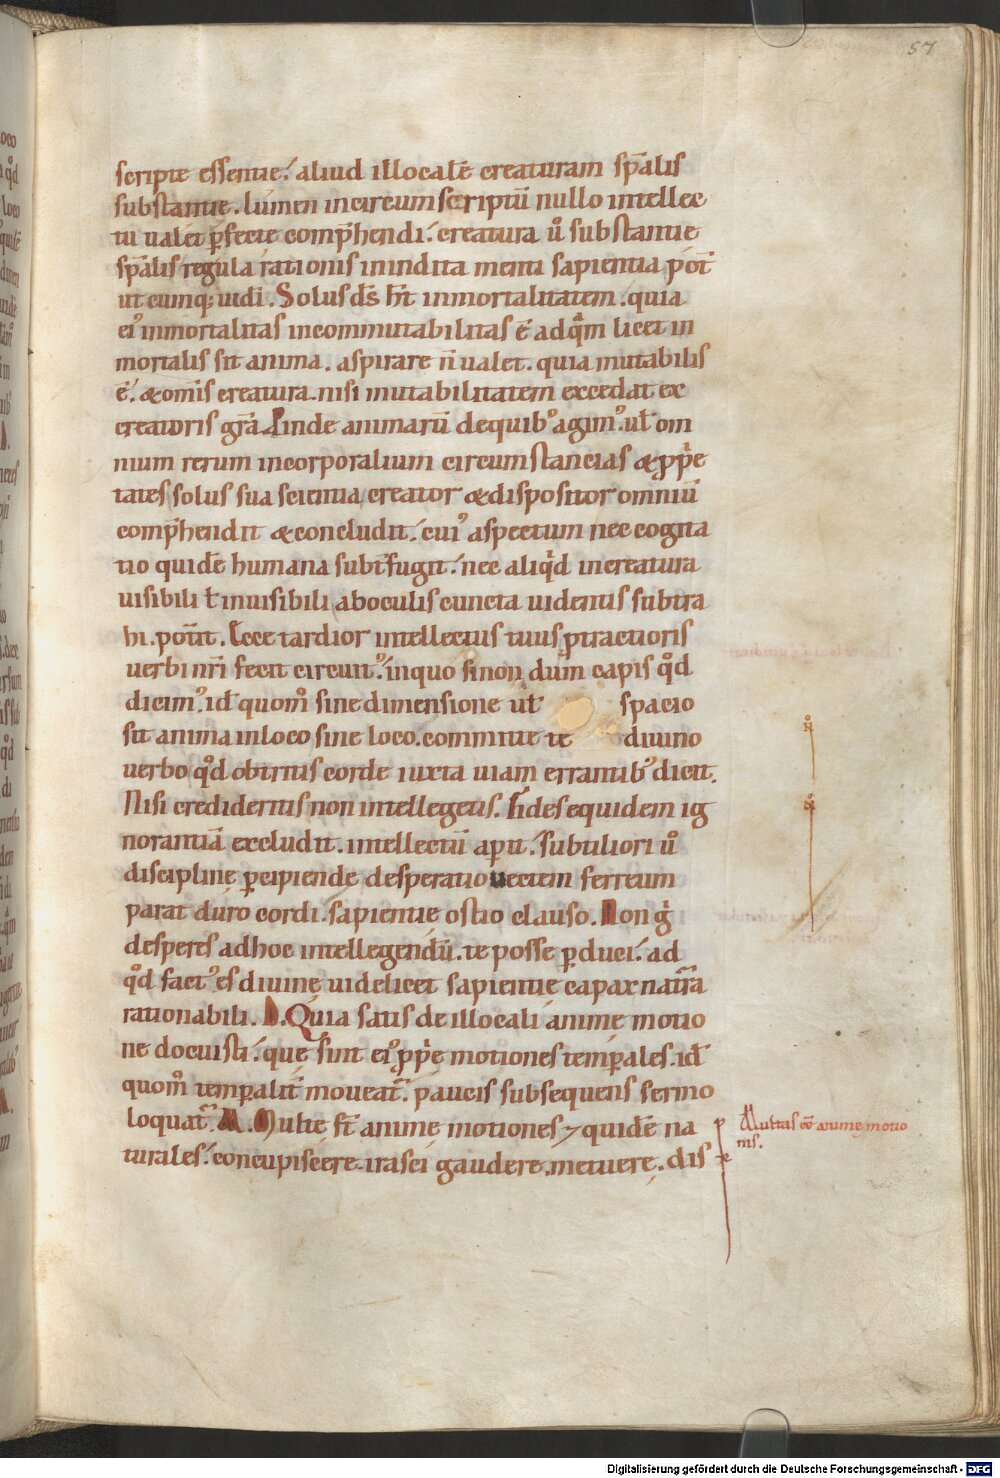 57
scriptę essentię. aliud illocalē creaturam sp̄alis
substantię. lumen incircumscriptū nullo intellec
tu ualet ꝑfecte comp̄hendi. creatura u̾o substantię
sp̄alis regula rationis inindita menti sapientia pot̄
utcumq; uidi. Solus ds̄ hr̄t inmortalitatem. quia
ei᾽ inmortalitas incommutabilitas ē adqͣm licet in
mortalis sit anima. aspirare n̄ ualet. quia mutabilis
ē. & om̄is creatura. nisi mutabilitatem excedat ex
creatoris gr̄a. Proinde animarū dequib᾽ agim᾽. ut̄ om
nium rerum incorporalium circumstancias & ꝓp̄e
tates solus sua scientia creator & dispositor omniū
comp̄hendit & concludit. cui᾽ aspectum nec cogita
tio quidē humana subt̄fugit. nec aliqͥd increatura
uisibili ł inuisibili aboculis cuncta uidentis subtra
hi. pot̄it. Ecce tardior intellectus tuus ꝓtractioris
uerbi nr̄i fecit circuit᾽. inquo sinon dum capis qd̄
dicim᾽. id̄ quom̄ sine dimensione ut̄ spacio
sit anima inloco sine loco. committe te diuino
uerbo qd̄ obtinuis corde iuxta uiam errantib᾽ dicit.
Nisi credideritis non intellegetis. Fides equidem ig
norantiā excludit. intellectū aperit. subtiliori u̾o
disciplinę percipiendę desperatio uectem ferreum
parat duro cordi. sapientię ostio clauso. Non g̾
desperes adhoc intellegendū. te posse ꝑduci. ad
qd̄ fact᾽ es diuinę uidelicet sapientię capax nat̄ra
rationabili. D. Quia satis de illocali animę motio
ne docuisti. que sunt ei᾽ ꝓp̄e motiones temꝑales. id̄
quom̄ temꝑalit̄ moueat̄. paucis subsequens sermo
loquat̄. M. Multę st̄ animę motiones ⁊ quidē na
turales. concupiscere. irasci gaudere. metuere. dis
Multas eē animę motio
nis.
Digitalisierung gefördert durch die Deutsche Forschungsgemeinschaft - DFG